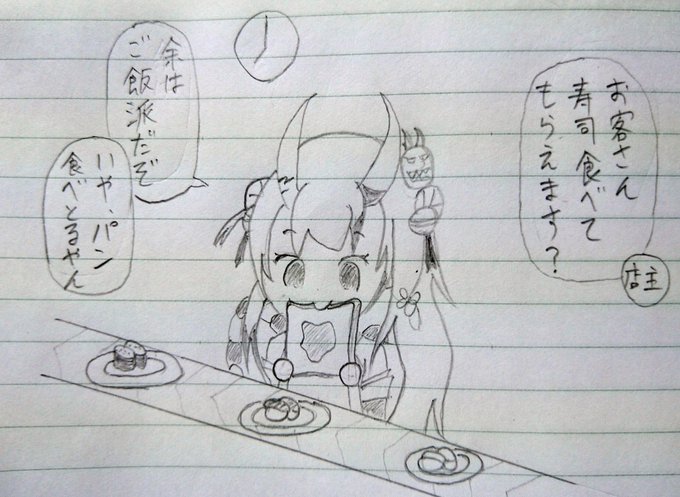 お客さん
寿司食べて
もらえます？
店主
余は
ご飯派だぞ
いや、パン
食べとるやん